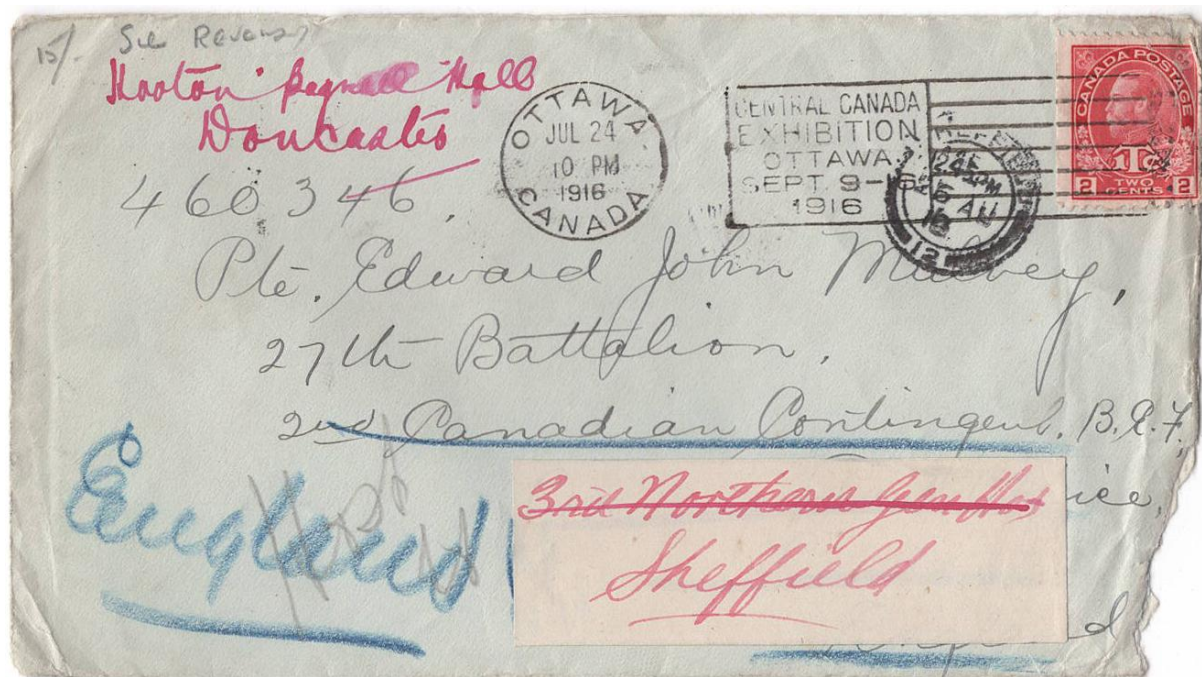 15/. See Reverse
Hooton Pagnell Hall
Doncaster
OTTAWA
JUL 24
10 PM
1916
CANADA
CENTRAL CANADA
EXHIBITION
OTTAWA
SEPT. 9-16
1916
SHEFFIELD
5 AU
16
12
CANADA POSTAGE
1TC
2 TWO CENTS 2
460346.
Pte. Edward John Mulvey,
27th Battalion.
2nd Canadian Contingent. B.E.F.
3rd Northern Gen Hos
Sheffield
England